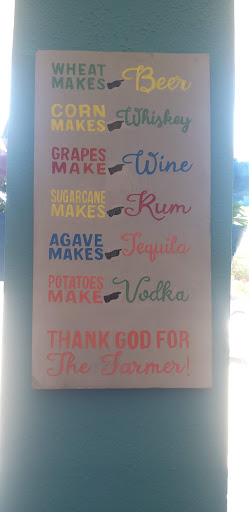 WHEAT
MAKES Beer
CORN
MAKES Whiskey
GRAPES
MAKE Wine
SUGARCANE
MAKES Rum
AGAVE
MAKES Tequila
POTATOES
MAKE Vodka
THANK GOD FOR
The Farmer!